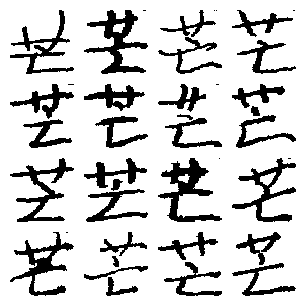 芒芒芒芒
芒芒芒芒
芒芒芒芒
芒芒芒芒